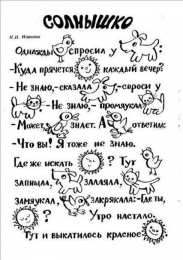 СОЛНЫШКО
Однажды спросил у
-Куда прячется каждый вечер?
-Не знаю,-сказала -спроси у
-Не знаю,-промяукал
-Может, знает. А ответила:
-Что вы! Я тоже не знаю.
Где же искать ? Тут
запищал, залаяла,
замяукал, закрякала:-Где ты,
? Утро настало.
Тут и выкатилось красное